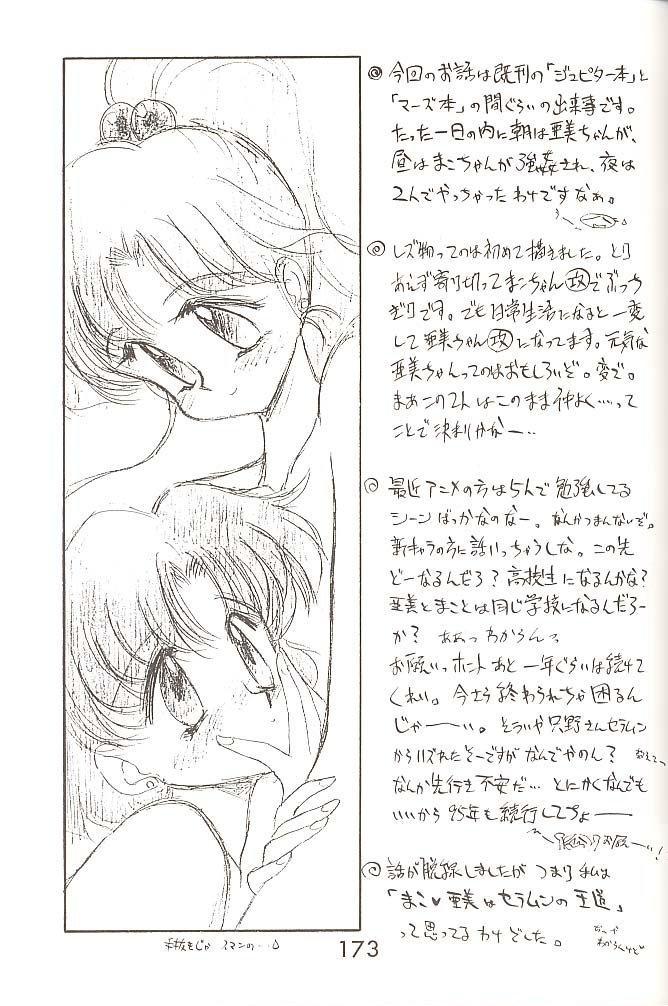 ◎今回のお話は既刊の「ジュピター本」と
「マーズ本」の間ぐらいの出来事です。
たった一日の内に朝は亜美ちゃんが、
昼はまこちゃんが強姦され、夜は
2人でやっちゃったわけですなぁ。
◎レズ物ってのは初めて描きました。とり
あえず寄り切ってまこちゃん攻でぶっち
ぎりです。でも日常生活になると一変
して亜美ちゃん攻になってます。元気な
亜美ちゃんってのはおもしろいぞ。変で。
まぁこの2人はこのまま仲よく…って
ことで決まりかなー…
◎最近アニメの方は5人で勉強してる
シーンばっかなのなー。なんかつまんないぞ。
新キャラの方に話いっちゃうしな。この先
どーなるんだろ?高校生になるんかな?
亜美とまことは同じ学校になるんだろー
か?ああっわからんっ
お願いっホントあと一年ぐらいは続けて
くれい。今さら終わられちゃ困るん
じゃーーい。そういや只野さんセラムン
からハズれたそーですがなんでやのん?
なんか先行き不安だ…とにかくなんでも
いいから95年も続行してちょーー
お願ーい!
◎話が脱線しましたがつまり私は
「まこ♥亜美はセラムンの王道」
って思ってるわけでした。
わからんけど
手抜きじゃ スマンの…
173